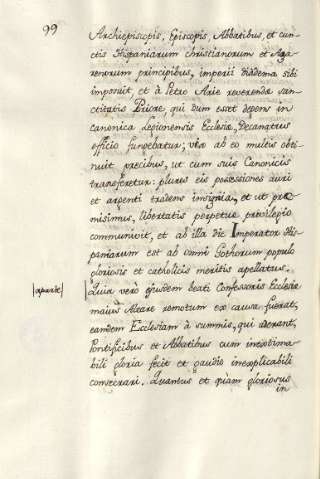 99
Archiepiscopis, Episcopis, Abbatibus, et cun-
ctis Hispaniarum christianorum et Aga-
renorum principibus, imperii diadema sibi
imposuit, et à Petro Arie reverendæ san-
ctitatis Priore, qui dum esset degens in
canonica Legionensis Ecclesiæ, Decanatus
officio fungebatur, vix ab eo multis obti-
nuit precibus, ut cum suis Canonicis
transferretur: plures eis possessiones auri
et argenti tradens insignia, et ut
nisimus, libertatis perpetuæ privilegio
communivit, et ab illa die Imperator His-
paniarum est ab omni Gothorum populo
gloriosis et catholicis meritis apellatus.
Quia vero ejusdem beati Confessoris Ecclesiæ
maius Altare remotum ex causa fuerat,
eandem Ecclesiam à summis, qui aderant,
Pontificibus et Abbatibus cum inextima-
bili gloria fecit et gaudio inexplicabili
consecrari. Quantus et quam gloriosus
in